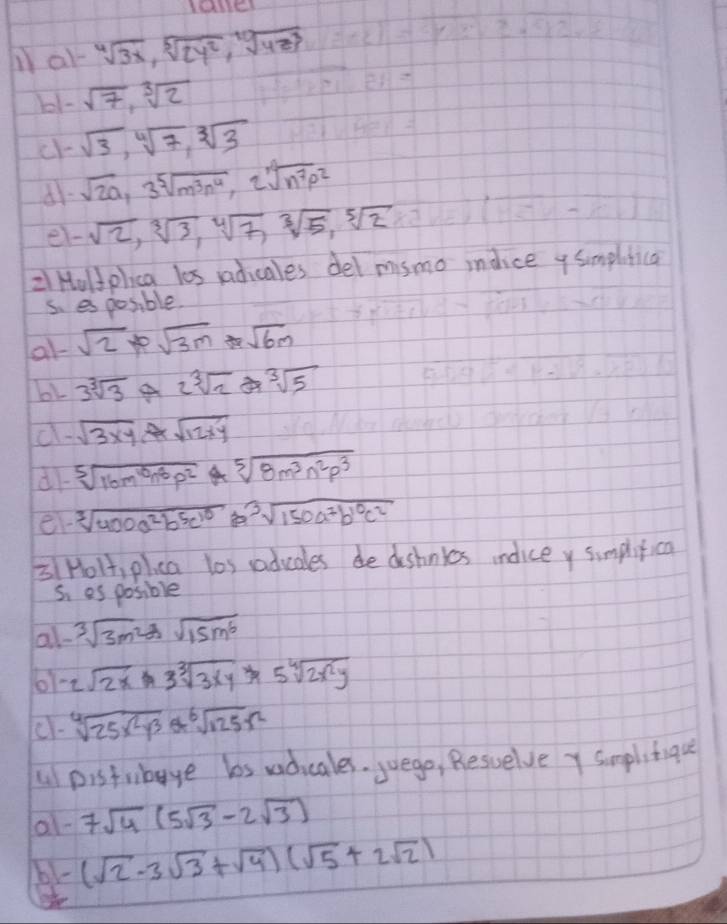 Taller
1) a)- ⁴√3x, ⁵√2y², ¹⁰√4z³
b)- √7, ³√2
c)- √3, ⁴√7, ³√3
d)- √2a, 3⁵√m³n⁴, 2 √n⁷p²
e)- √2, ³√3, ⁴√7, ³√5, ⁵√2
2) Multplica los radicales del mismo indice y simplifica
si es posible.
a)- √2 * √3m * √6m
b)- 3³√3 * 2³√2 * ³√5
c)- √3xy * √12xy
d)- ⁵√16m n⁸p² * ⁵√8m³n²p³
e)- ³√400a²b⁵c¹⁰ * ³√150a²b¹⁰c²
3) Moltiplica los radicales de distintos indice y simplifica
si es posible
a)- ³√3m² * √15m⁶
b)- 2√2x * 3³√3xy * 5⁴√2x²y
c)- ⁴√25x²y³ * ⁶√125x²
4) Distribuye los radicales. juego, Resuelve y simplifique
a)- 7√4 (5√3 - 2√3)
b)- (√2 - 3√3 + √4) (√5 + 2√2)